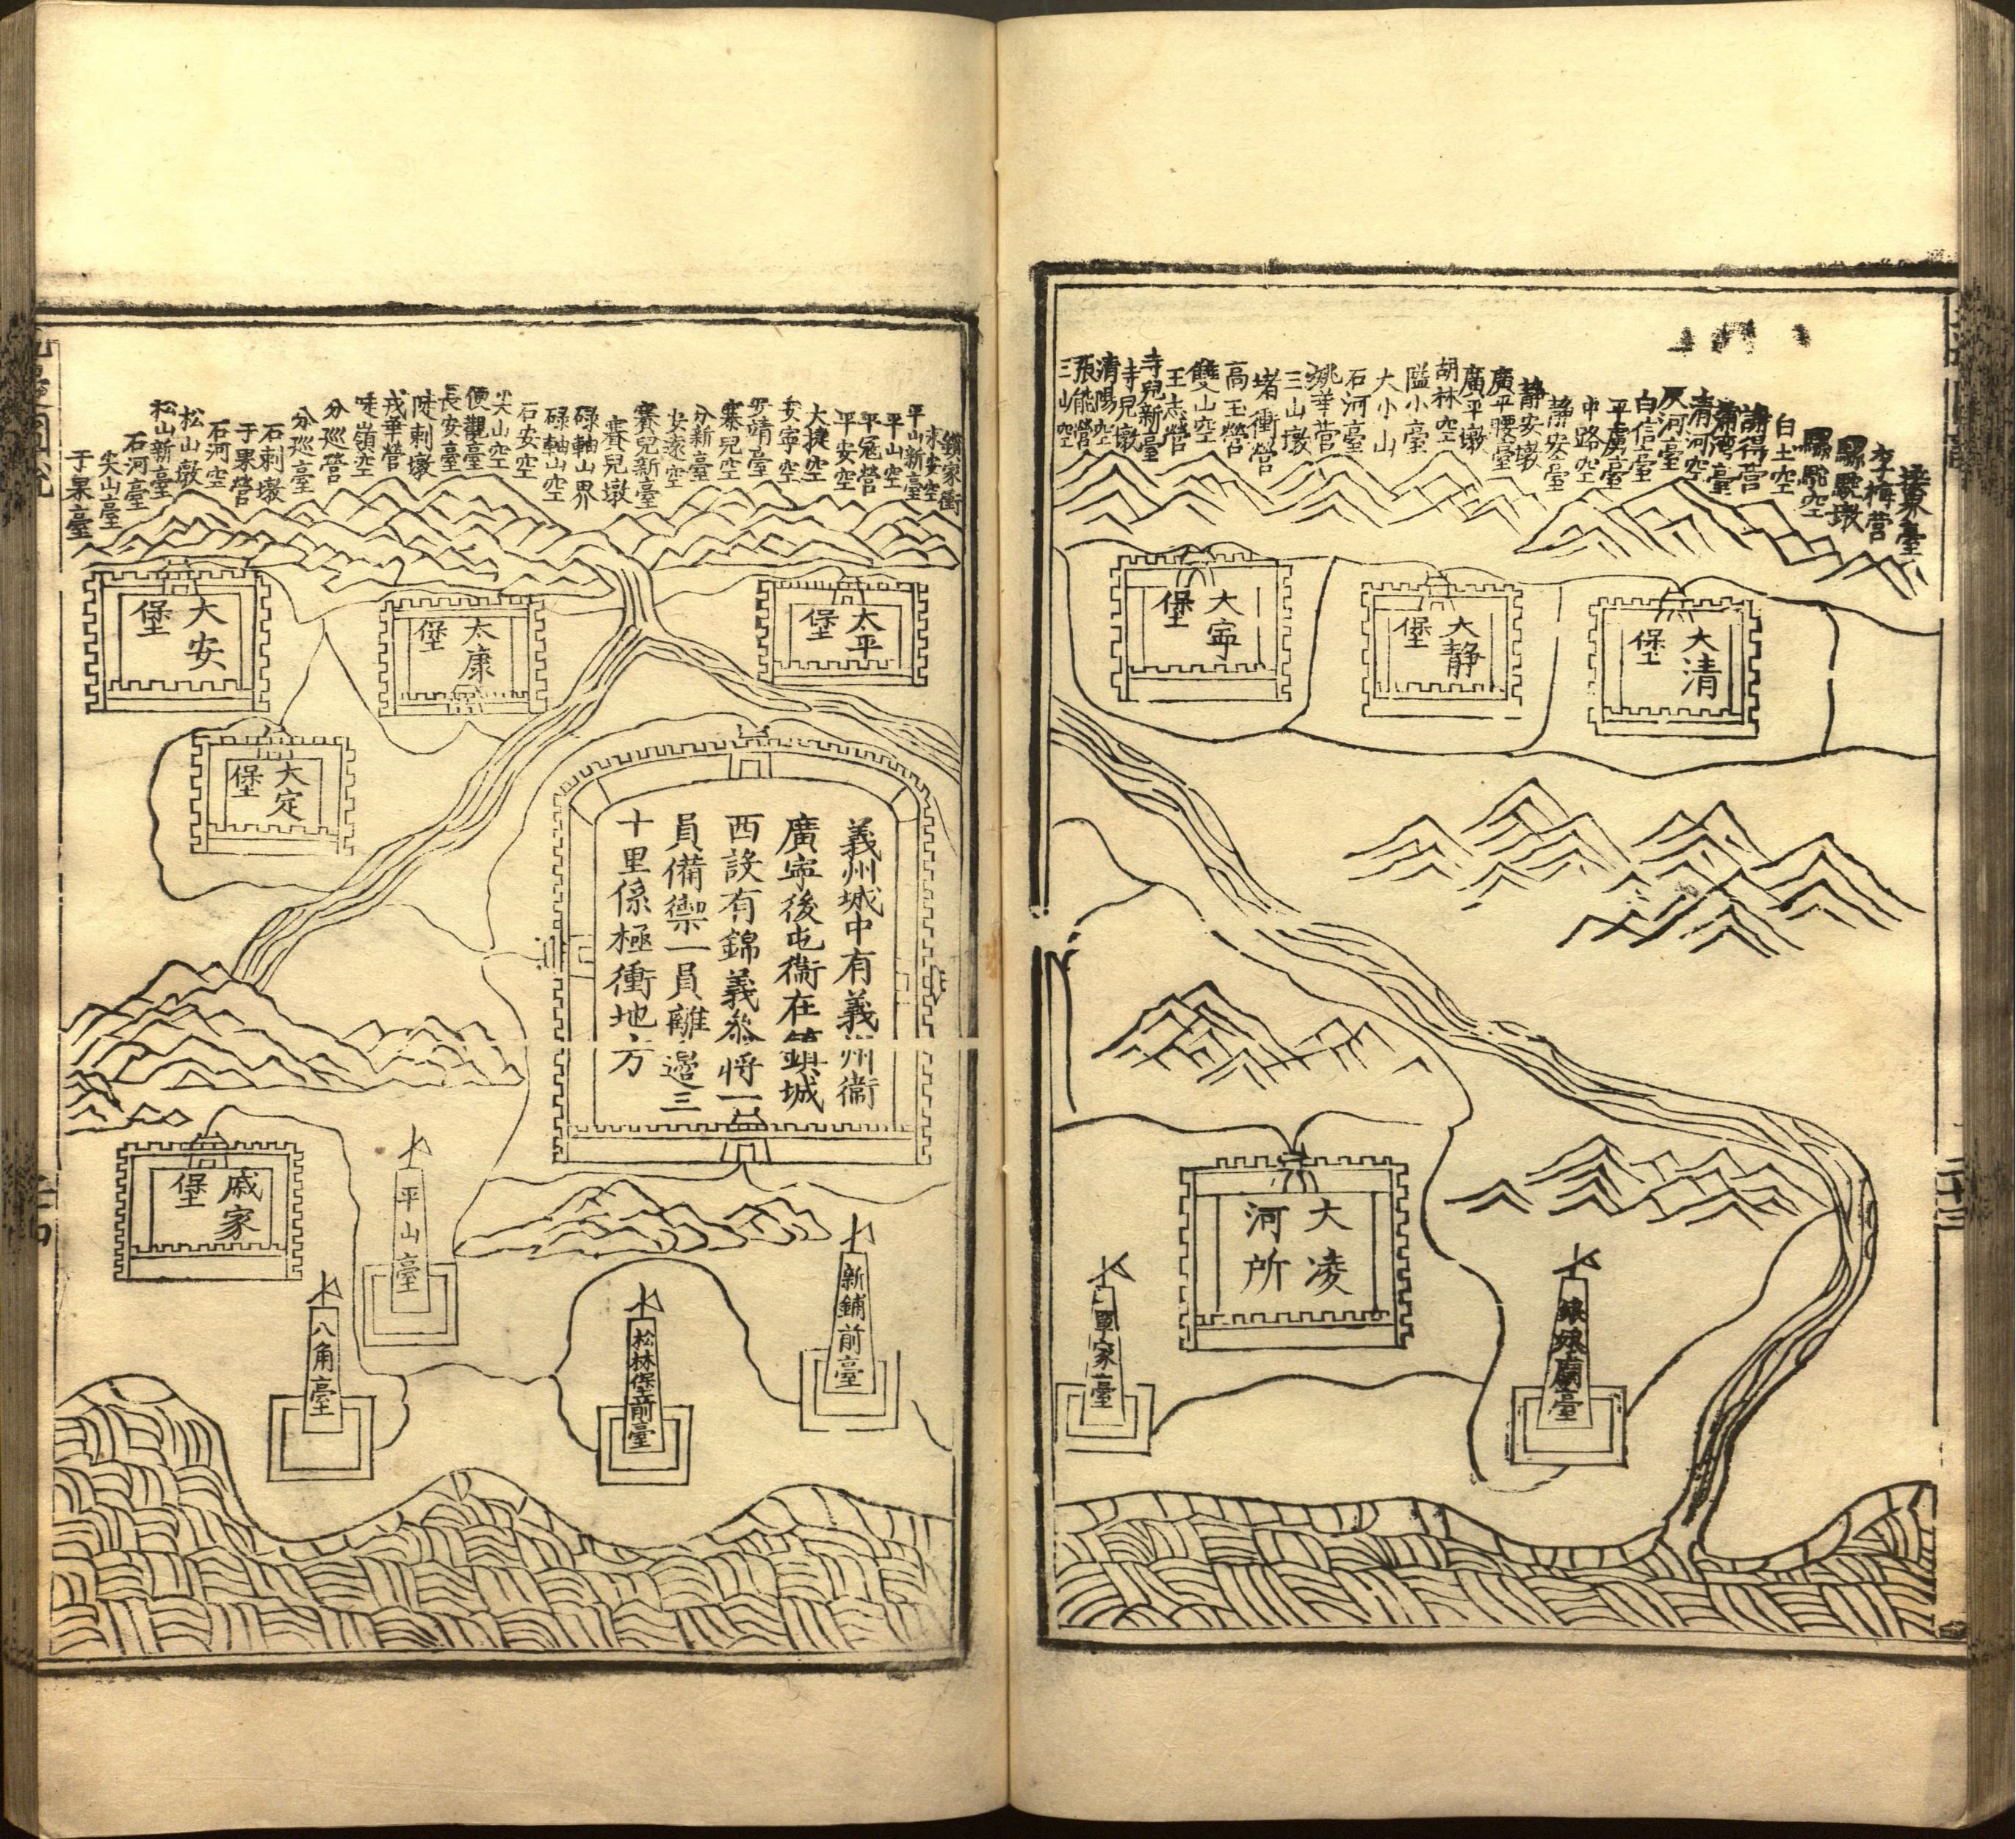 接界臺
李梅營
騸駝墩
騸駝空
白土空
請得營
清河空
灰河臺
白信臺
平虜臺
中路空
靜安臺
靜安墩
廣平腰臺
廣平墩
胡林空
隘小臺
大小山
石河臺
姚華營
三山墩
堵衝營
高玉營
雙山空
王志營
寺兒新臺
寺兒墩
清陽空
張能營
三山空
大清堡
大靜堡
大寧堡
大凌河所
娘娘廟臺
軍家臺
二十三
鎮家衝
永安空
平山新臺
平山空
平寇營
平安空
大捷空
安寧空
安靖臺
寨兒空
分新臺
安遠空
賽兒新臺
賽兒墩
碌軸山界
碌軸山空
石安空
尖山空
便觀臺
長安臺
陡刺墩
戎華營
陡嶺空
分巡營
分巡臺
石刺墩
于果營
石河空
松山墩
松山新臺
石河臺
尖山臺
于果臺
太平堡
太康堡
大安堡
大定堡
義州城中有義州衞
廣寧後屯衞在鎮城
西設有錦義叅將一
員備禦一員離邊三
十里係極衝地方
戚家堡
平山臺
八角臺
松林堡前臺
新鋪前臺